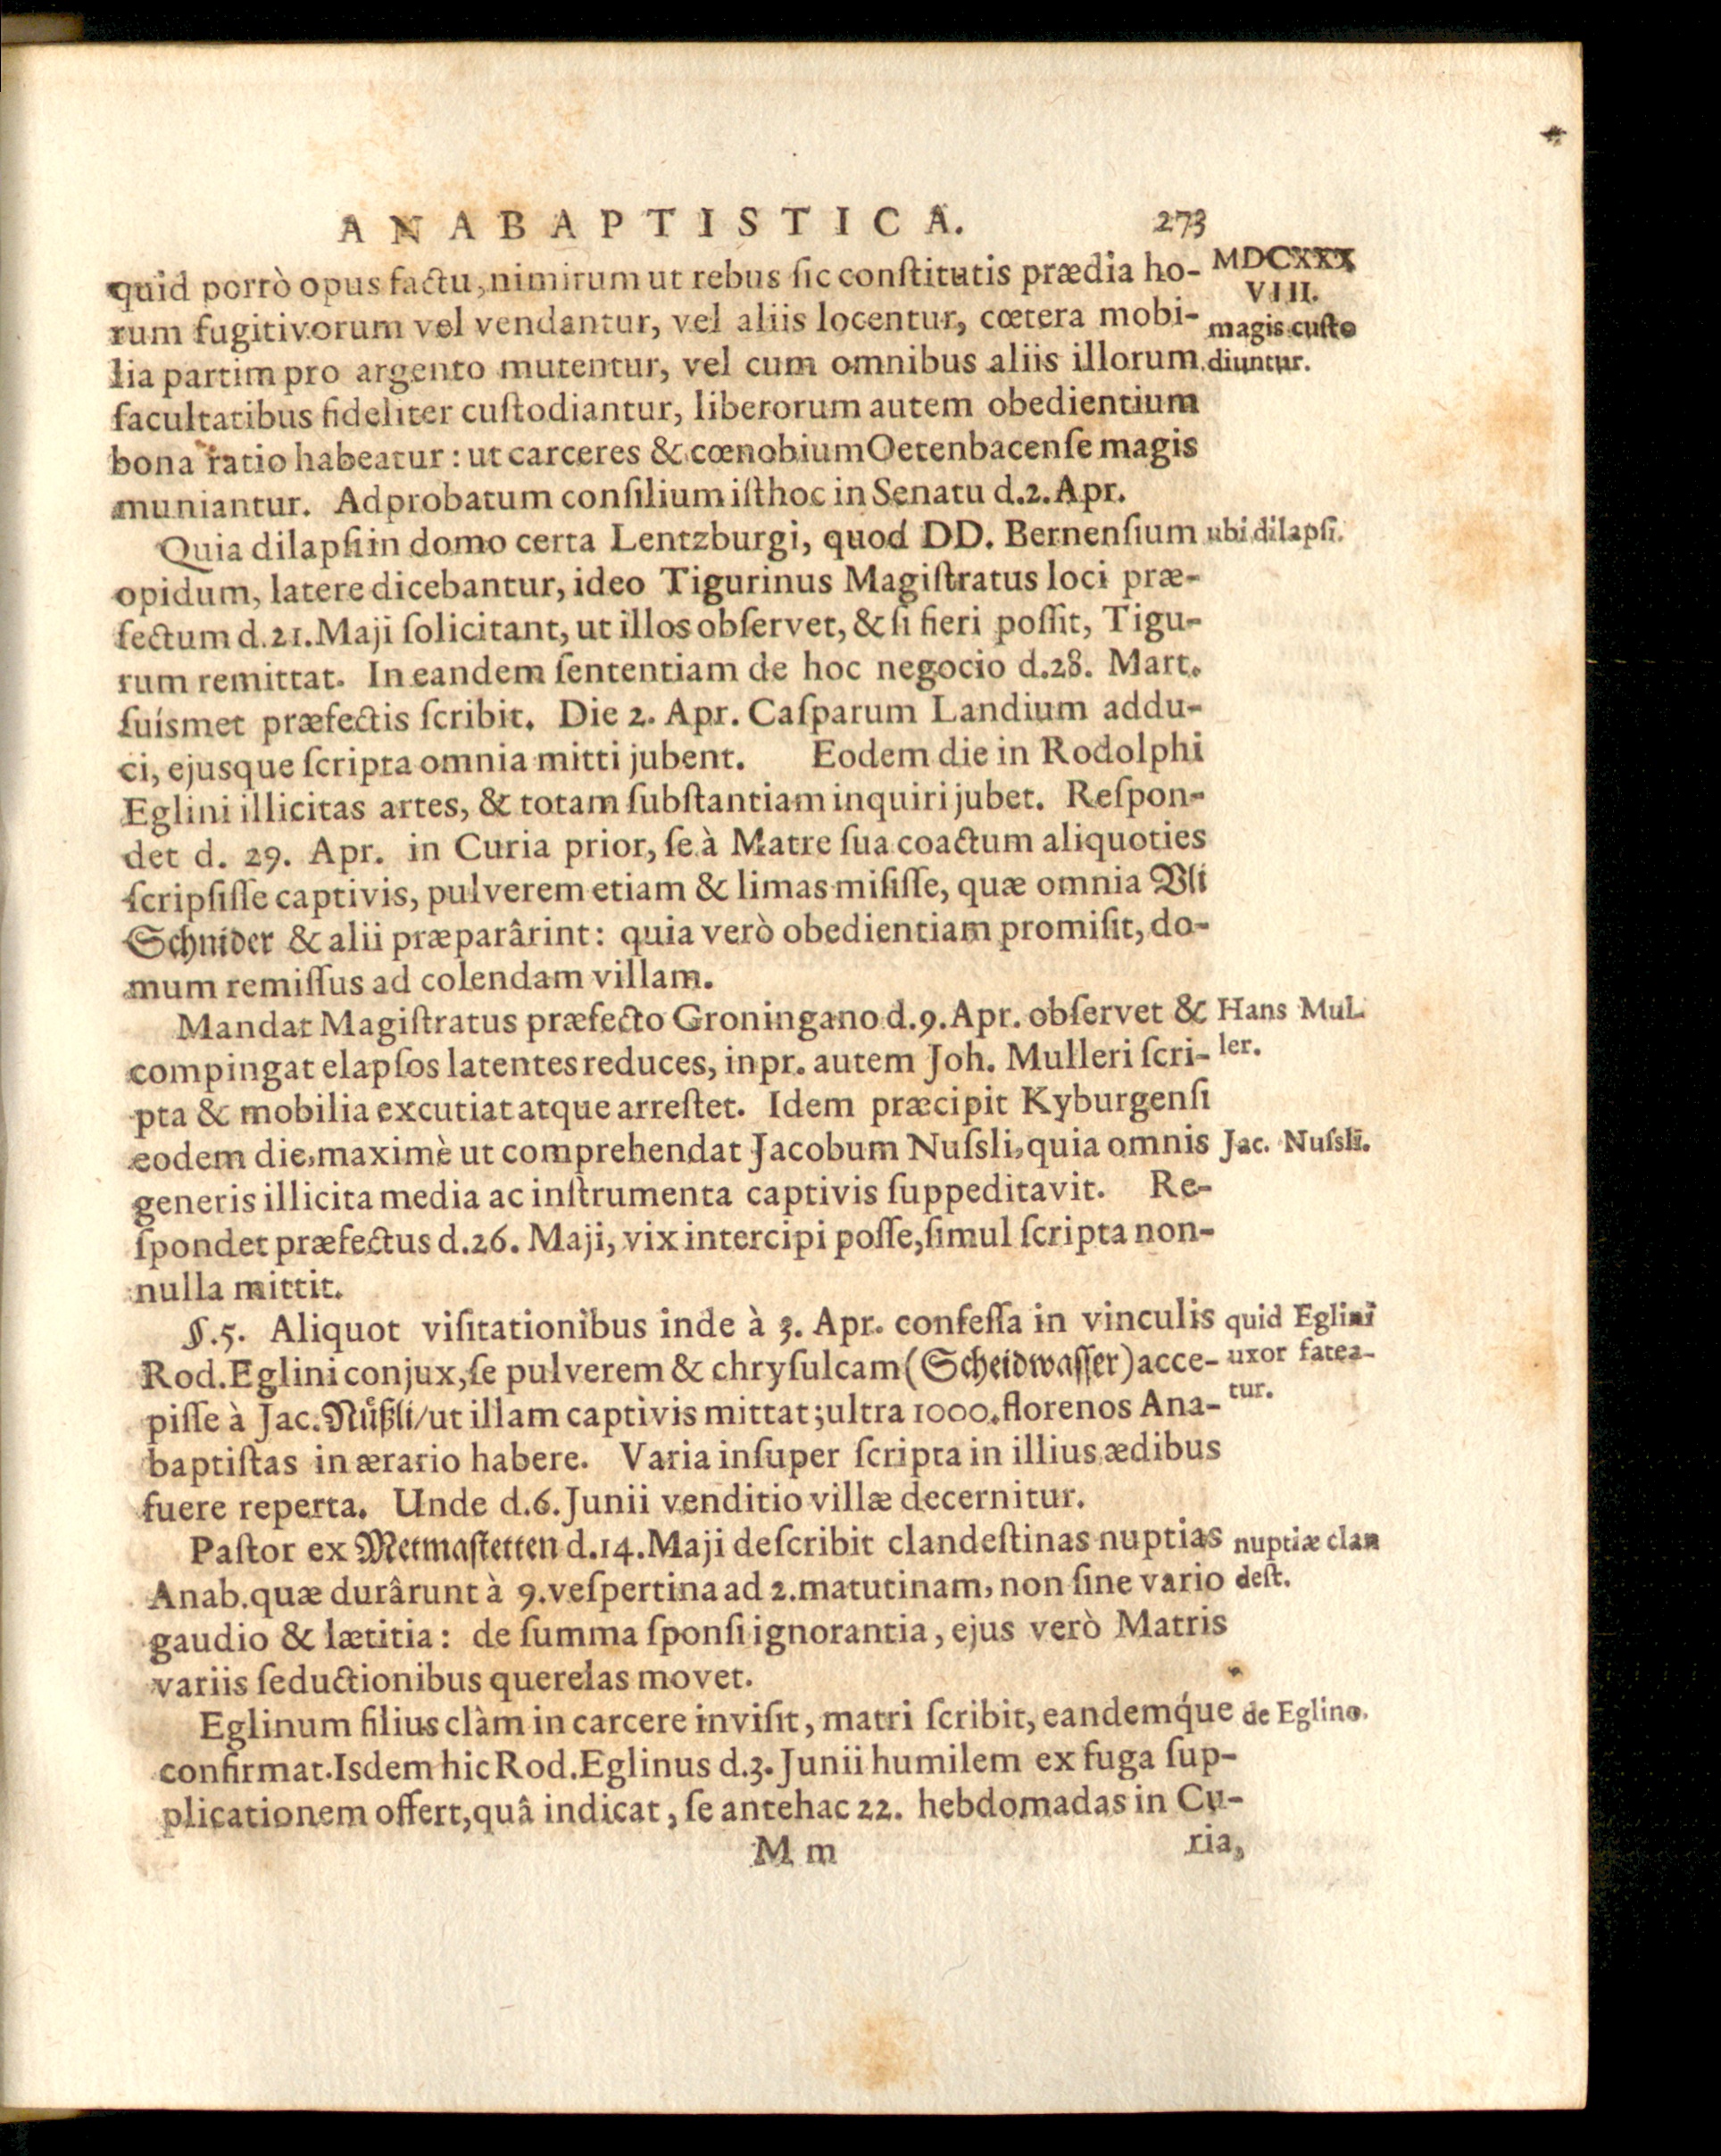 ANABAPTISTICA. 273
quid porrò opus factu, nimirum ut rebus ſic conſtitutis prædia ho-
MDCXXX
VIII.
rum fugitivorum vel vendantur, vel aliis locentur, cœtera mobi-
magis cuſto
lia partim pro argento mutentur, vel cum omnibus aliis illorum
diuntur.
facultatibus fideliter cuſtodiantur, liberorum autem obedientium
bona ratio habeatur: ut carceres & cœnobium Oetenbacenſe magis
muniantur. Adprobatum conſilium iſthoc in Senatu d.2. Apr.
Quia dilapſi in domo certa Lentzburgi, quod DD. Bernenſium
ubi dilapſi.
opidum, latere dicebantur, ideo Tigurinus Magiſtratus loci præ-
fectum d.21. Maji ſolicitant, ut illos obſervet, & ſi fieri poſſit, Tigu-
rum remittat. In eandem ſententiam de hoc negocio d.28. Mart.
ſuísmet præfectis ſcribit. Die 2. Apr. Caſparum Landium addu-
ci, ejusque ſcripta omnia mitti jubent. Eodem die in Rodolphi
Eglini illicitas artes, & totam ſubſtantiam inquiri jubet. Reſpon-
det d. 29. Apr. in Curia prior, ſe à Matre ſua coactum aliquoties
ſcripſiſſe captivis, pulverem etiam & limas miſiſſe, quæ omnia Vli
Schnider & alii præparârint: quia verò obedientiam promiſit, do-
mum remiſſus ad colendam villam.
Mandat Magiſtratus præfecto Groningano d.9. Apr. obſervet &
Hans Mul-
compingat elapſos latentes reduces, inpr. autem Joh. Mulleri ſcri-
ler.
pta & mobilia excutiat atque arreſtet. Idem præcipit Kyburgenſi
eodem die, maximè ut comprehendat Jacobum Nuſsli, quia omnis
Jac. Nuſsli.
generis illicita media ac inſtrumenta captivis ſuppeditavit. Re-
ſpondet præfectus d.26. Maji, vix intercipi poſſe, ſimul ſcripta non-
nulla mittit.
§.5. Aliquot viſitationibus inde à 3. Apr. confeſſa in vinculis
quid Eglini
Rod. Eglini conjux, ſe pulverem & chryſulcam (Scheidwaſſer) acce-
uxor fatea-
piſſe à Jac. Nüßli/ ut illam captivis mittat; ultra 1000. florenos Ana-
tur.
baptiſtas in ærario habere. Varia inſuper ſcripta in illius ædibus
fuere reperta. Unde d.6. Junii venditio villæ decernitur.
Paſtor ex Metmaſtetten d.14. Maji deſcribit clandeſtinas nuptias
nuptiæ clan
Anab. quæ durârunt à 9. veſpertina ad 2. matutinam, non ſine vario
deſt.
gaudio & lætitia: de ſumma ſponſi ignorantia, ejus verò Matris
variis ſeductionibus querelas movet.
Eglinum filius clàm in carcere inviſit, matri ſcribit, eandemq́ue
de Eglino.
confirmat. Isdem hic Rod. Eglinus d.3. Junii humilem ex fuga ſup-
plicationem offert, quâ indicat, ſe antehac 22. hebdomadas in Cu-
M m ria,